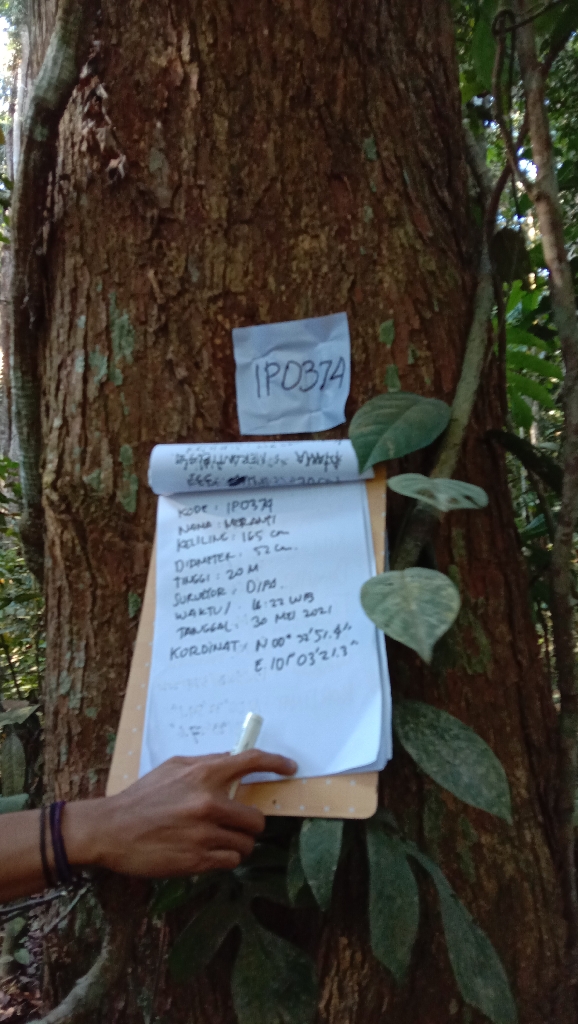 IP0374
KODE : IP0374
NAMA : MERANTI
KELILING : 165 cm
DIAMETER : 52 cm.
TINGGI : 20 M
SURVEYOR : DIPA.
WAKTU : 16:22 WIB
TANGGAL : 30 MEI 2021
KORDINAT : N 00° 52'51.4"
E. 101° 03'21.3"